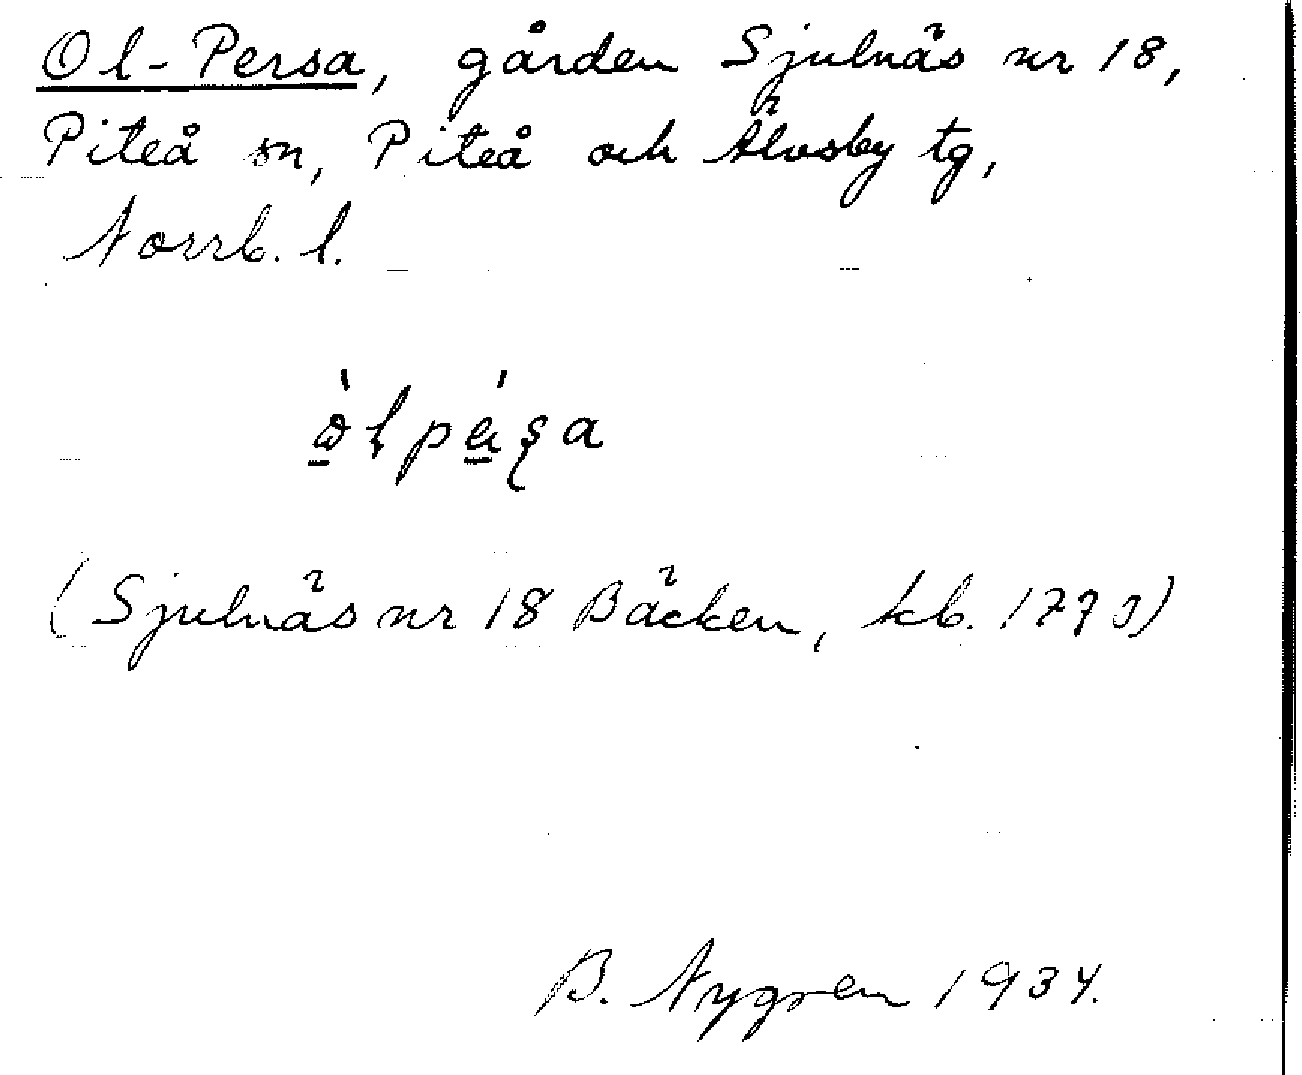 Ol-Persa, gården Sjulnäs nr 18,
Piteå sn, Piteå och Älvsby tg,
Norrb. l.
(Sjulnäs nr 18 Bäcken, kb.
B. Nygren 1934.